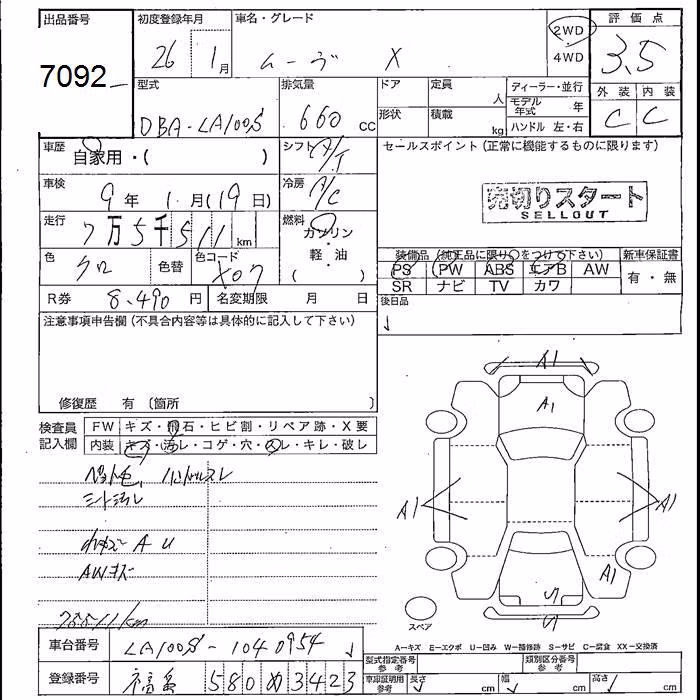 出品番号
7092
初度登録年月
26 1月
車名・グレード
ムーヴ X
2WD
4WD
評価点
3.5
型式
DBA-LA100S
排気量
660 cc
ドア
形状
定員 人
積載 kg
ディーラー・並行
モデル年式 年
ハンドル 左・右
外装 内装
C C
車歴
自家用・( )
シフト
A/T
セールスポイント(正常に機能するものに限ります)
車検
9年 1月(19日)
冷房
A/C
売切りスタート
SELLOUT
走行
7万5千511km
燃料
ガソリン
・
軽油
( )
色
クロ
色替
色コード
X07
装備品(純正品に限り○をつけて下さい)
新車保証書
PS PW ABS エアB AW
有・無
SR ナビ TV カワ
R券 8,490円
名変期限 月 日
後日品
注意事項申告欄(不具合内容等は具体的に記入して下さい)
修復歴 有 〔箇所 〕
検査員記入欄
FW キズ・飛石・ヒビ割・リペア跡・X要
内装 キズ・汚レ・コゲ・穴・スレ・キレ・破レ
ハンドルスレ
シート汚レ
A U
AWキズ
75511km
A1
A1
A1
A1
A1
スペア
A-キズ E-エクボ U-凹み W-補修跡 S-サビ C-腐食 XX-交換済
車台番号
LA100S-1040954
型式指定番号
参考
類別区分番号
参考
登録番号
福島 580 め 3423
車庫証明用
参考
長さ cm
幅 cm
高さ cm